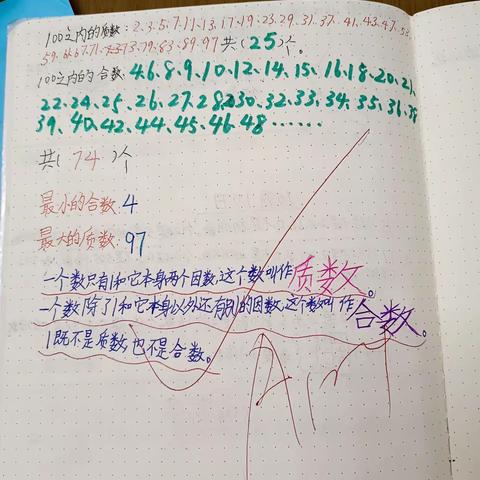 100之内的质数:2、3、5、7、11、13、17、19、23、29、31、37、41、43、47、53
59、61、67、71、73、79、83、89、97共(25)个。
100之内的合数:4、6、8、9、10、12、14、15、16、18、20、21、
22、24、25、26、27、28、30、32、33、34、35、36、38
39、40、42、44、45、46、48……
共(74)个
最小的合数:4
最大的质数:97
一个数只有1和它本身两个因数,这个数叫作质数。
一个数除了1和它本身以外还有别的因数,这个数叫作合数。
1既不是质数,也不是合数。